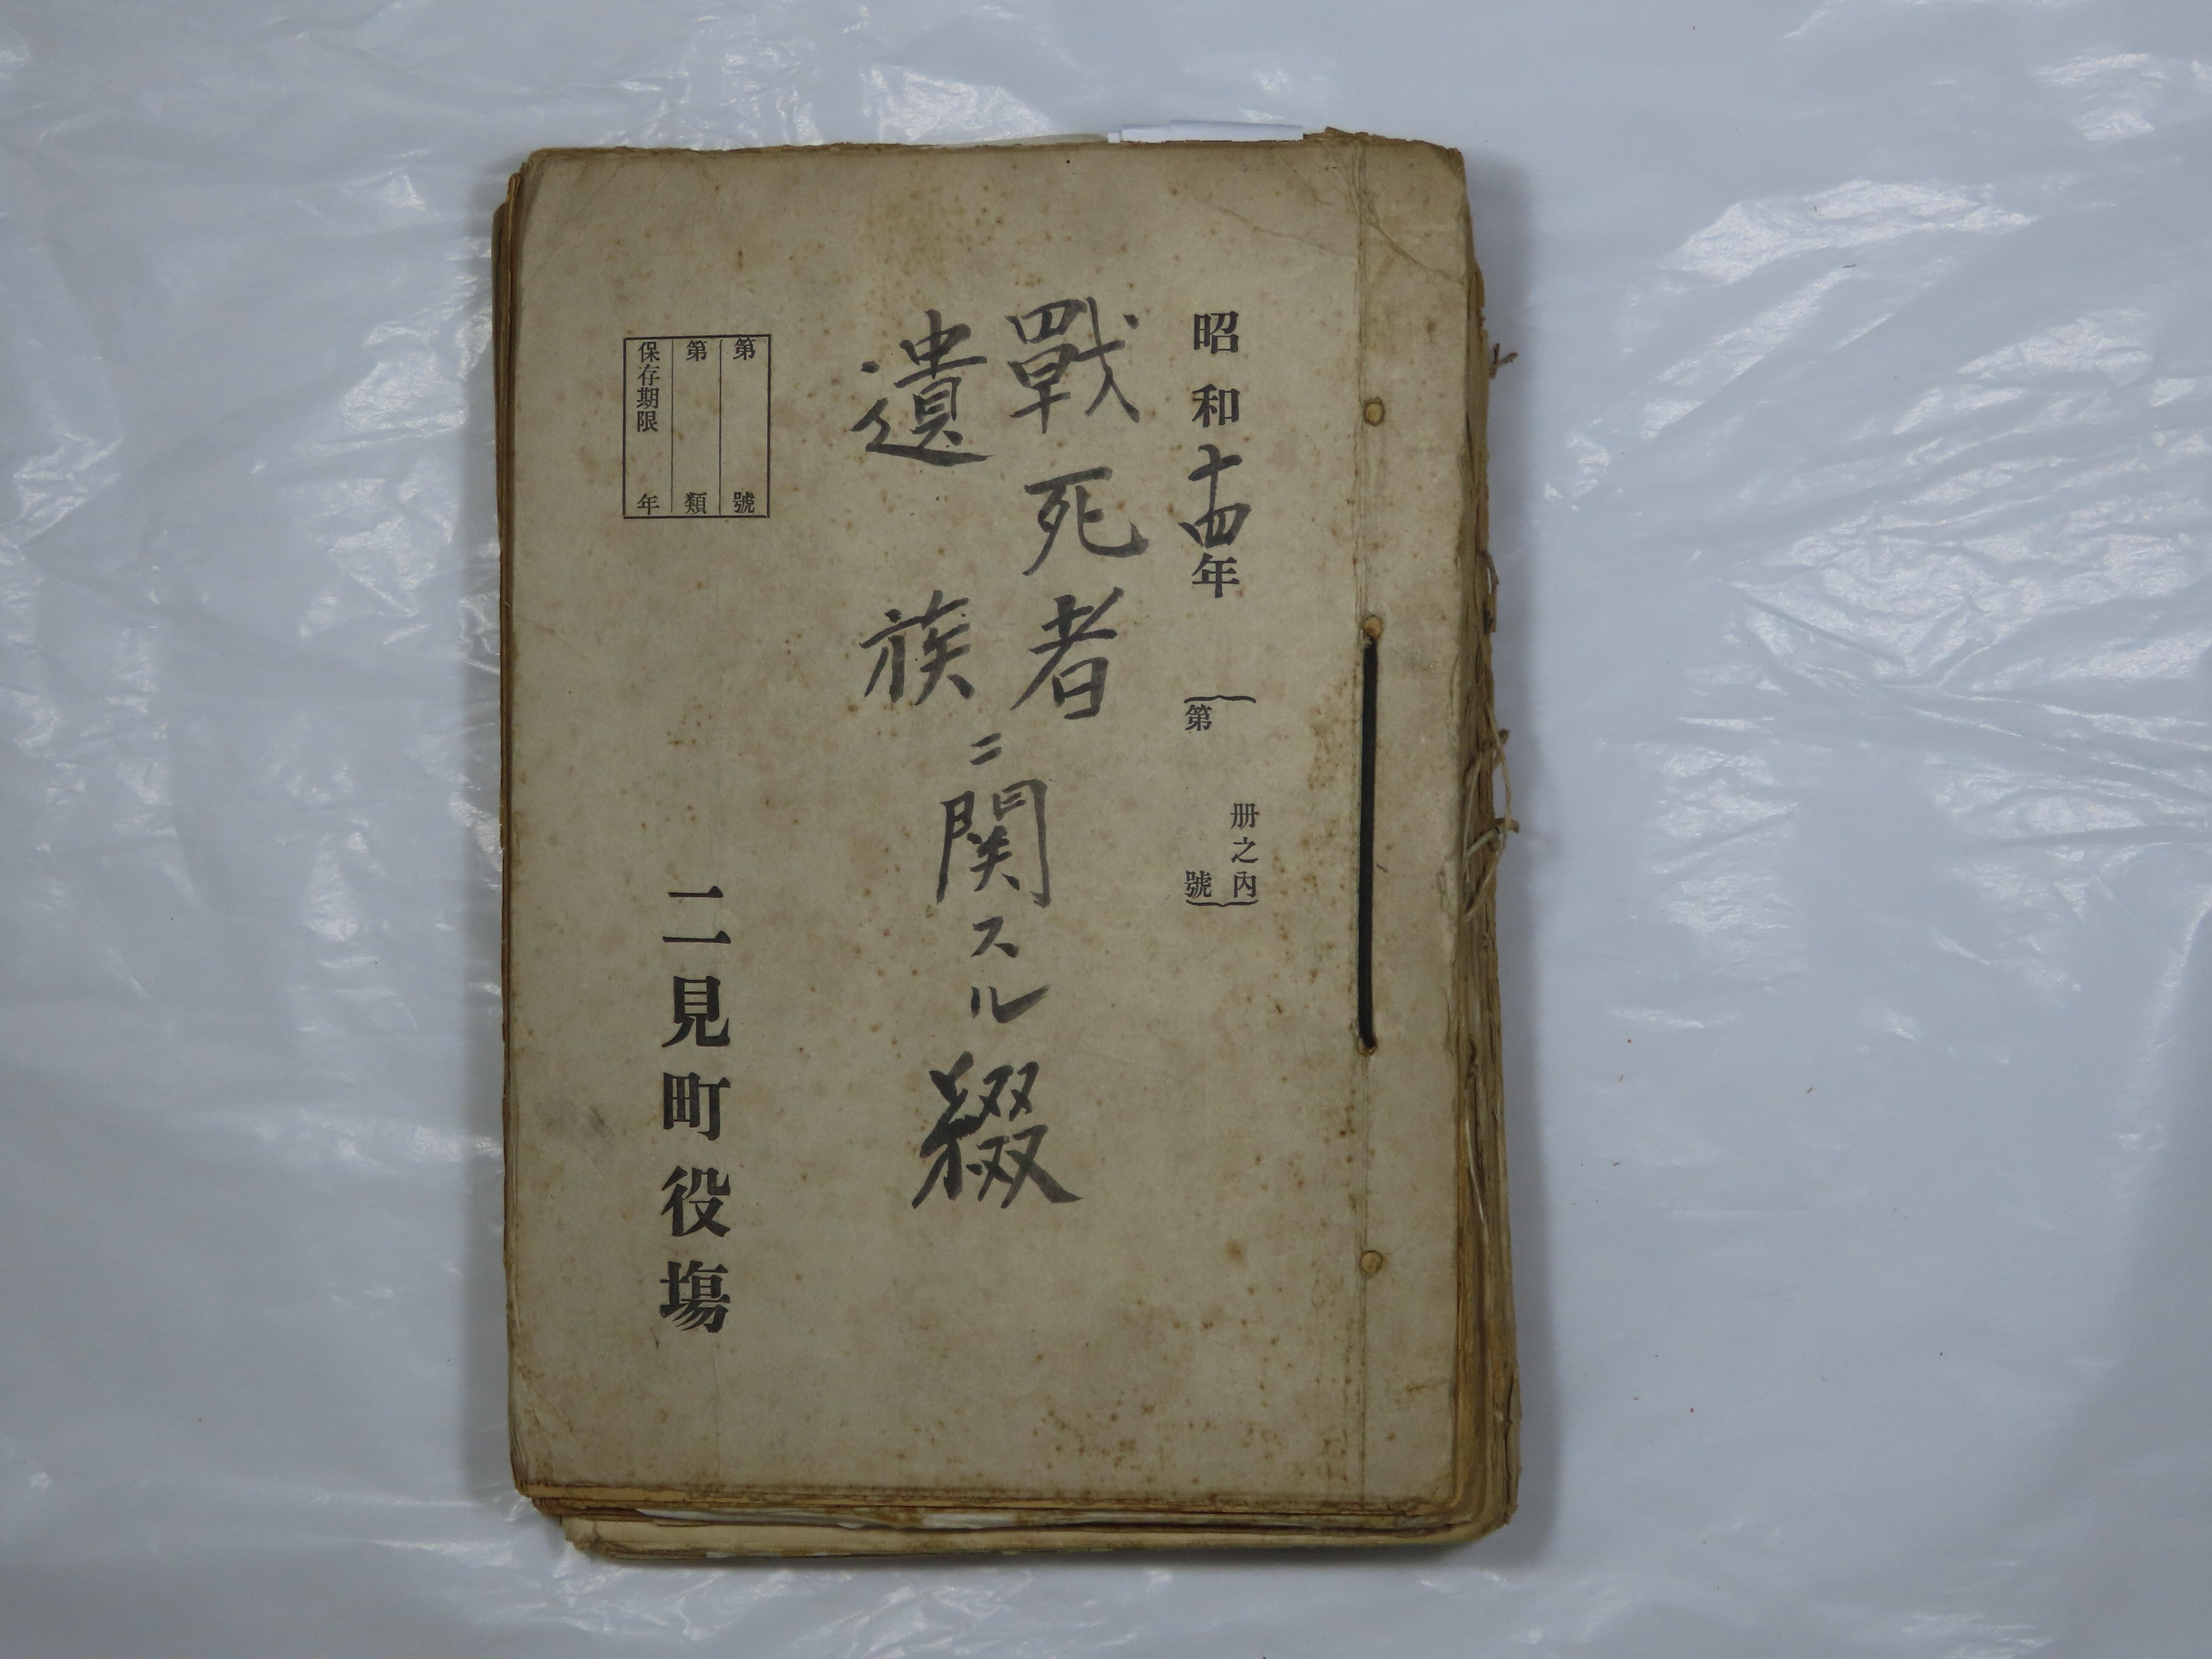 昭和十四年
册之内
第 號
戰死者
遺族
ニ関スル綴
第 號
第 類
保存期限 年
二見町役塲